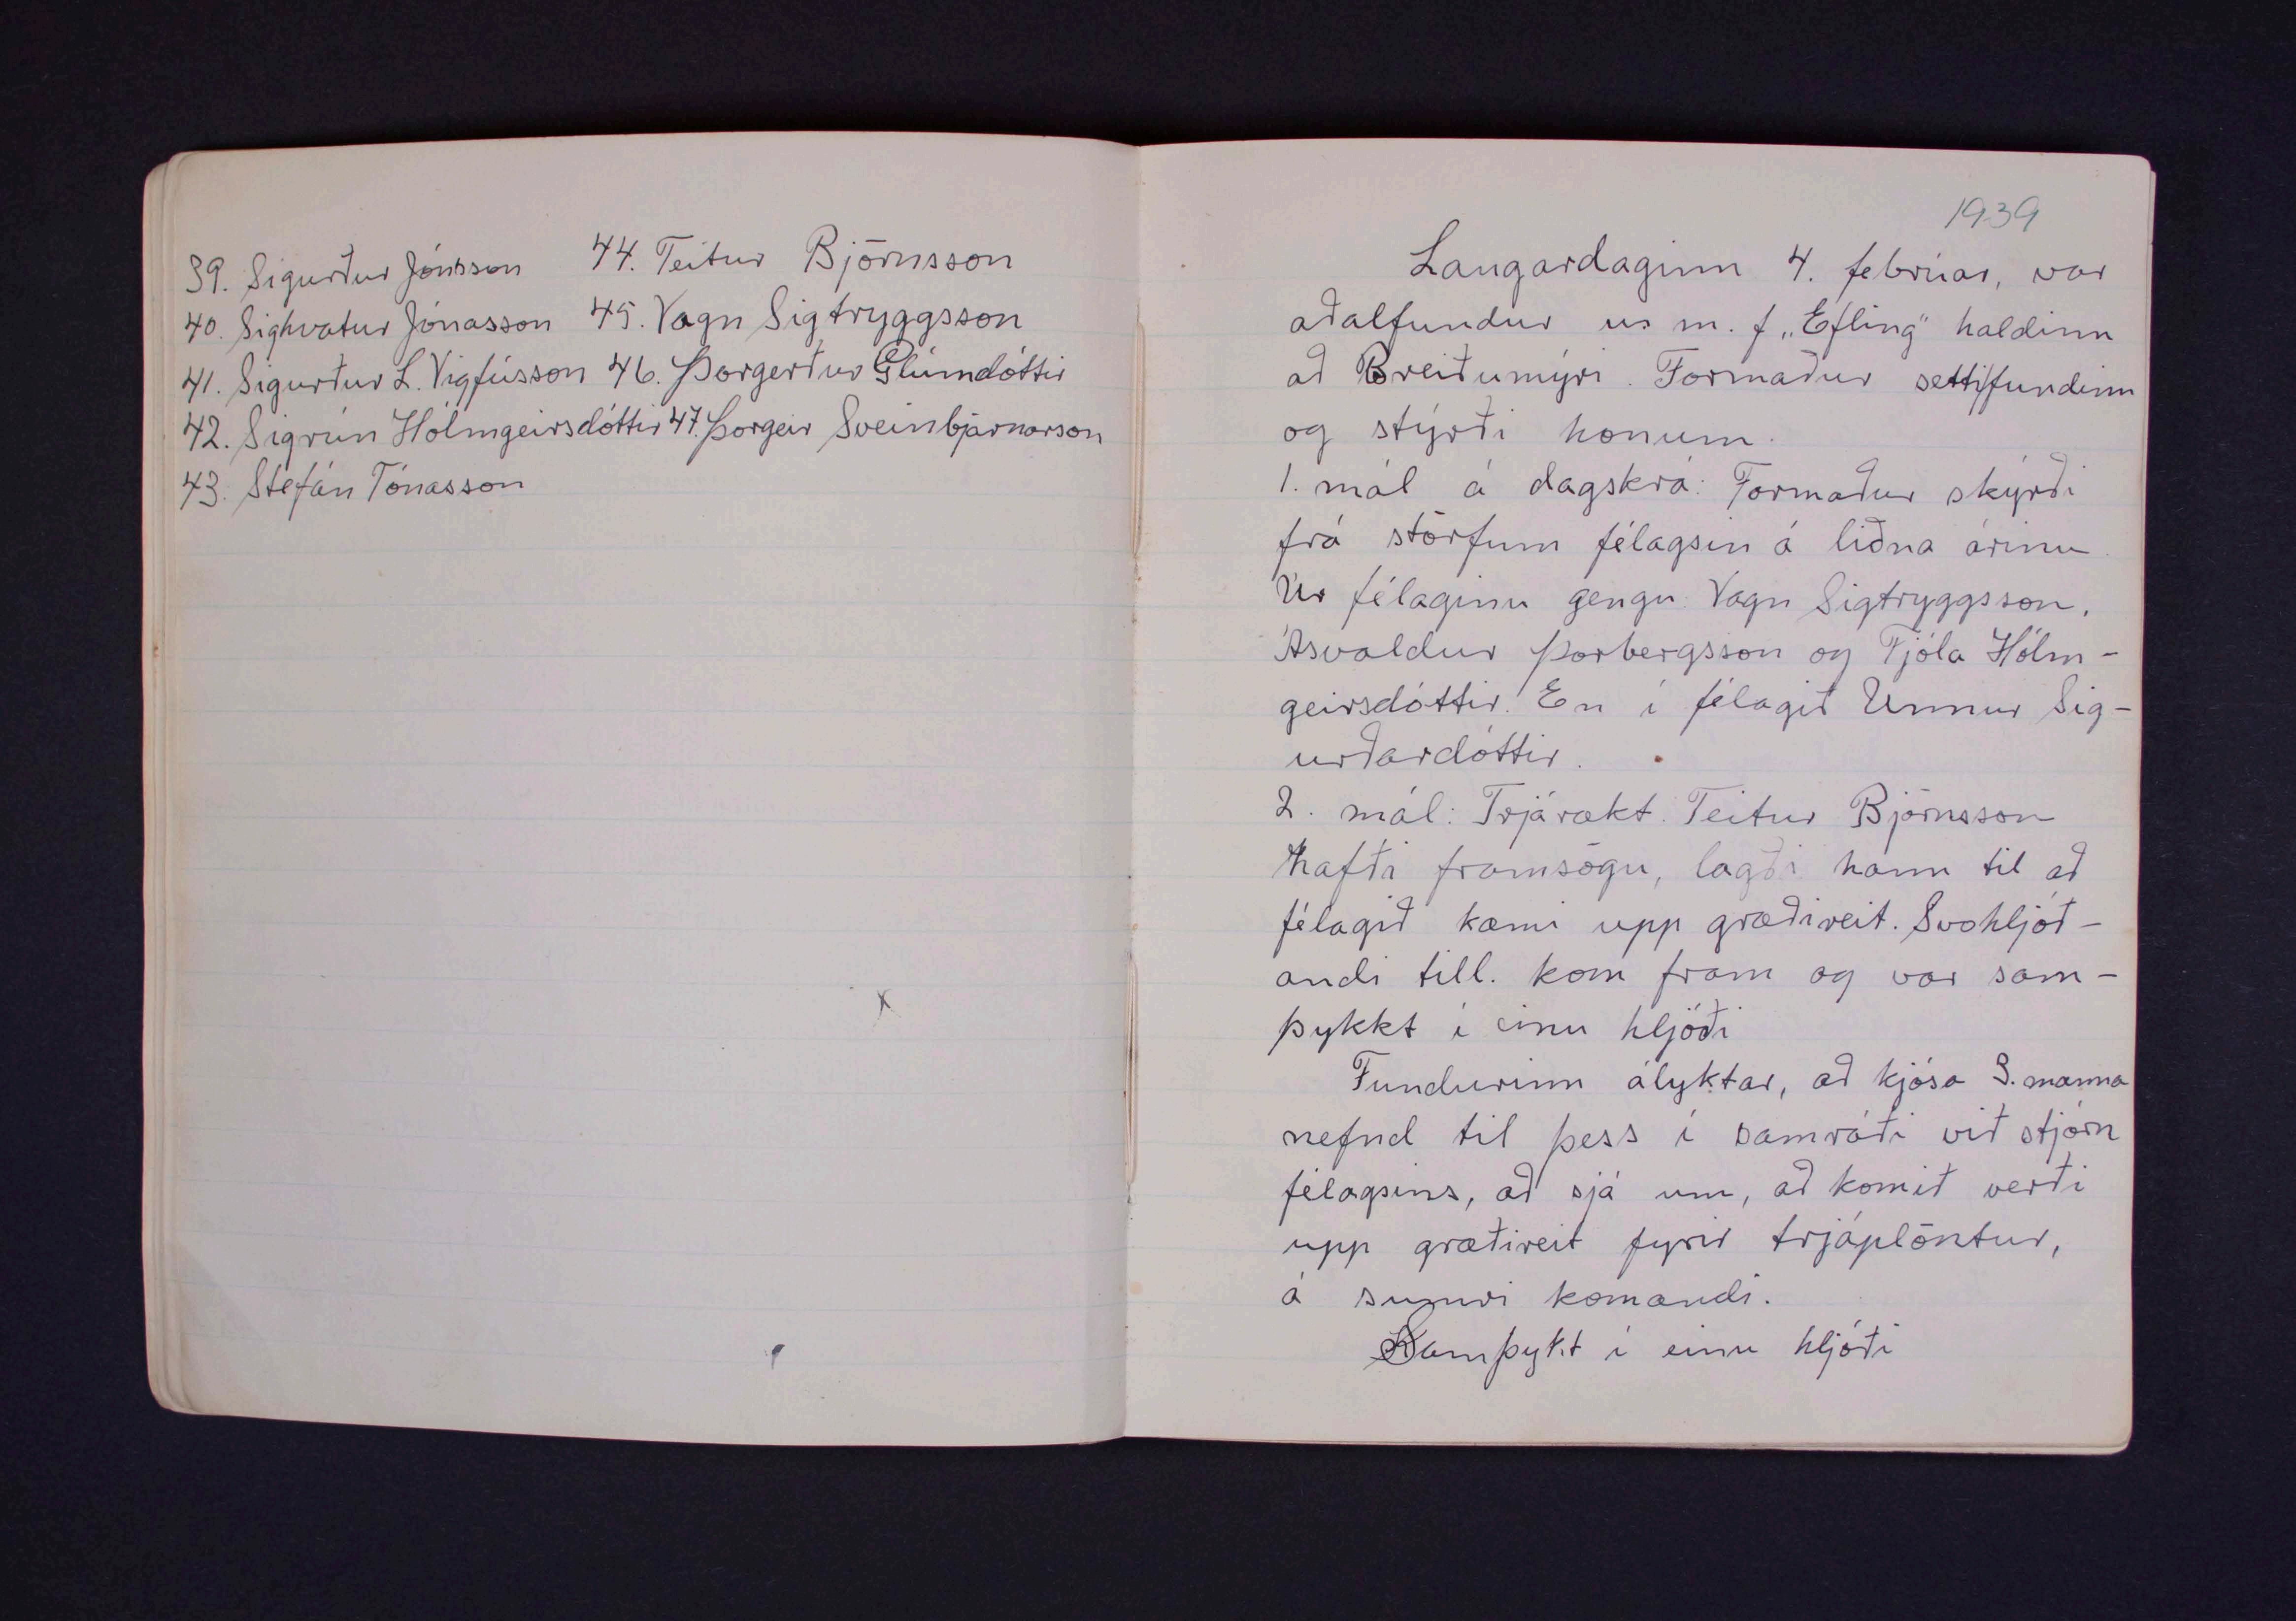 39. Sigurður Jónsson
40. Sighvatur Jónasson
41. Sigurður L. Vigfússon
42. Sigrún Hólmgeirsdóttir
43. Stefán Tónasson
44. Teitur Björnsson
45. Vagn Sigtryggsson
46. Þorgerður Glúmdóttir
47. Þorgeir Sveinbjarnarson
1939
Laugardaginn 4. febrúar, var
aðalfundur u m. f „Efling" haldinn
að Breiðumýri. Formaður setti fundinn
og stýrði honum.
1. mál á dagskrá: Formaður skýrði
frá störfum félagsin á liðna árinu.
Úr félaginu gengu Vagn Sigtryggsson,
Ásvaldur Þorbergsson og Fjóla Hólm-
geirsdóttir. En í félagið Unnur Sig-
urðardóttir.
2. mál: Trjárækt. Teitur Björnsson
hafði framsögu, lagði hann til að
félagið kæmi upp græðireit. Svohljóð-
andi till. kom fram og var sam-
þykkt í einu hljóði
Fundurinn ályktar, að kjósa 3. manna
nefnd til þess í samráði við stjórn
félagsins, að sjá um, að komið verði
upp græðireit fyrir trjáplöntur,
á sumri komandi.
Samþykt í einu hljóði